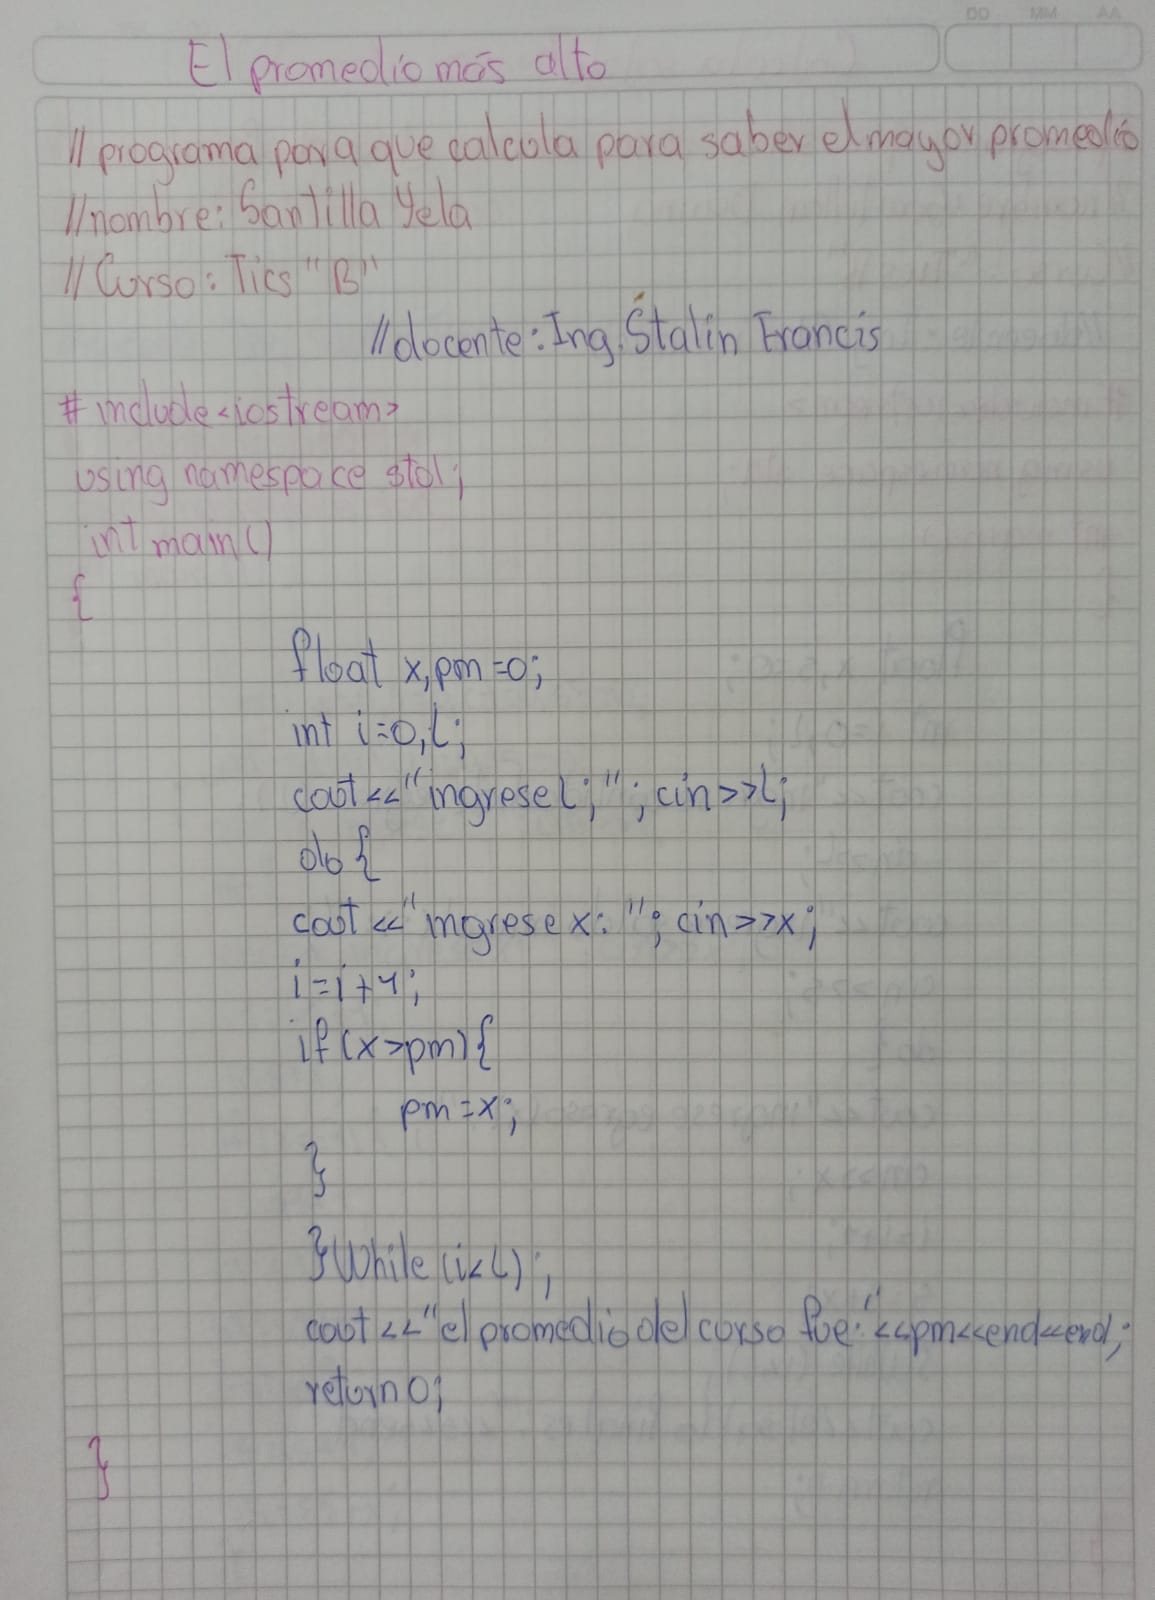 DD MM AA
El promedio más alto
// programa para que calcula para saber el mayor promedio
//nombre: Santilla Yela
// Curso: Tics "B"
//docente: Ing. Stalin Francis
# include<iostream>
using namespace std;
int main()
{
float x,pm=0;
int i=0,L;
cout<<"ingrese L; "; cin>>L;
do {
cout<<"ingrese x: "; cin>>x;
i=i+1;
if (x>pm){
pm=x;
}
}While (i<L);
cout<<"el promedio del curso fue:"<<pm<<end<<end;
return 0;
}